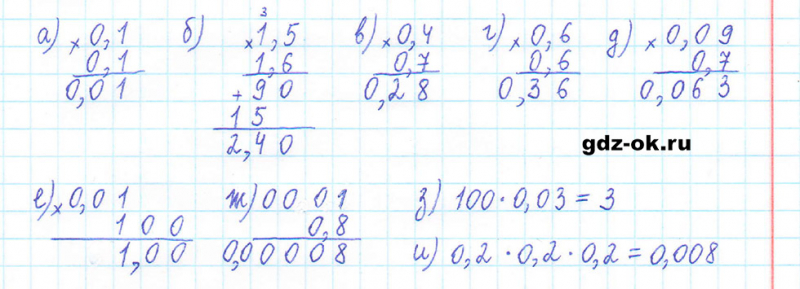 а) × 0,1 б) ³ × 1,5 в) × 0,4 г) × 0,6 д) × 0,09
0,1 1,6 0,7 0,6 0,7
0,01 + 90 0,28 0,36 0,063
15
2,40
gdz-ok.ru
е) × 0,01 ж) 00 01 з) 100 · 0,03 = 3
100 0,8
1,00 0,00008 и) 0,2 · 0,2 · 0,2 = 0,008